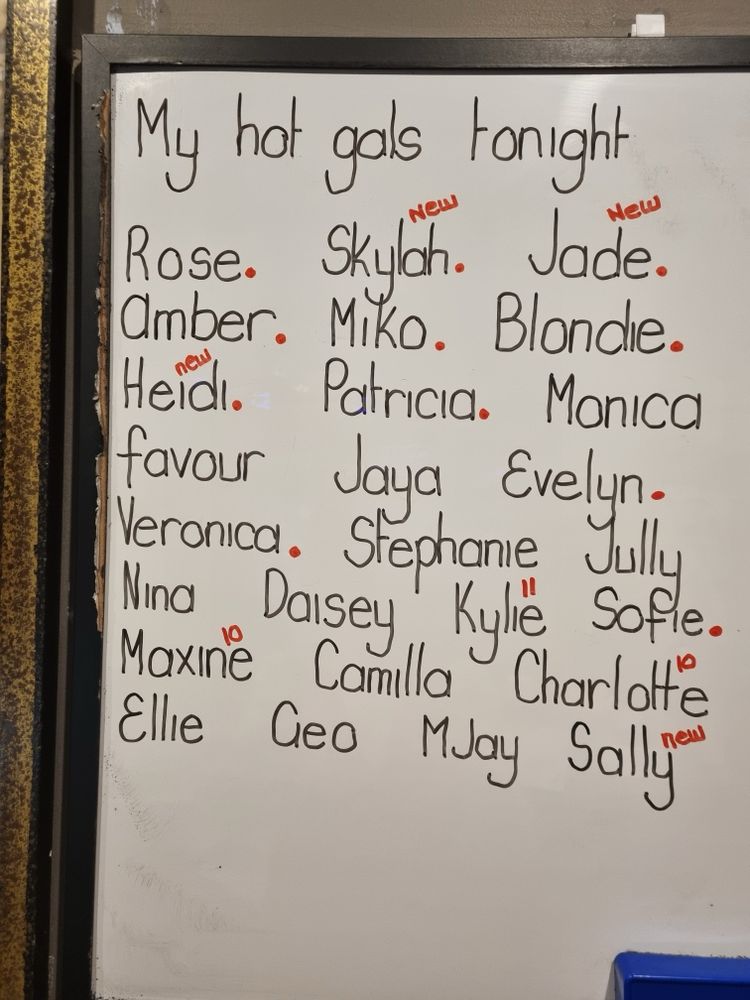 My hot gals tonight
New New
Rose. Skylah. Jade.
Amber. Miko. Blondie.
new
Heidi. Patricia. Monica
favour Jaya Evelyn.
Veronica. Stephanie Jully
11
Nina Daisey Kylie Sofie.
10 10
Maxine Camilla Charlotte
Ellie Geo MJay Sally new